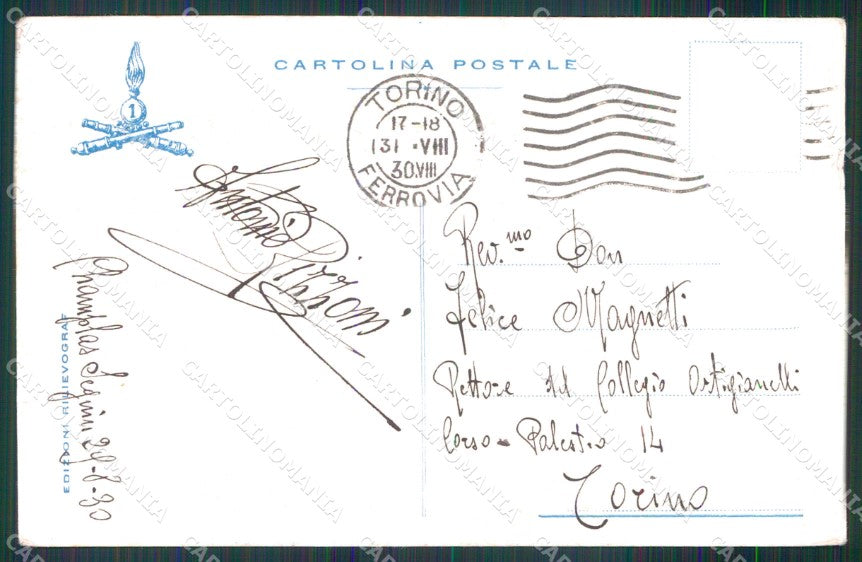 CARTOLINA POSTALE
1
TORINO
17-18
31 · VIII
30.VIII
FERROVIA
Antonio Pizzoni
29-8-30
EDIZIONI RILIEVOGRAF
Rev.mo Don
Felice Magnetti
Rettore del Collegio Artigianelli
Corso - Palestro 14
Torino
CARTOLINOMANIA